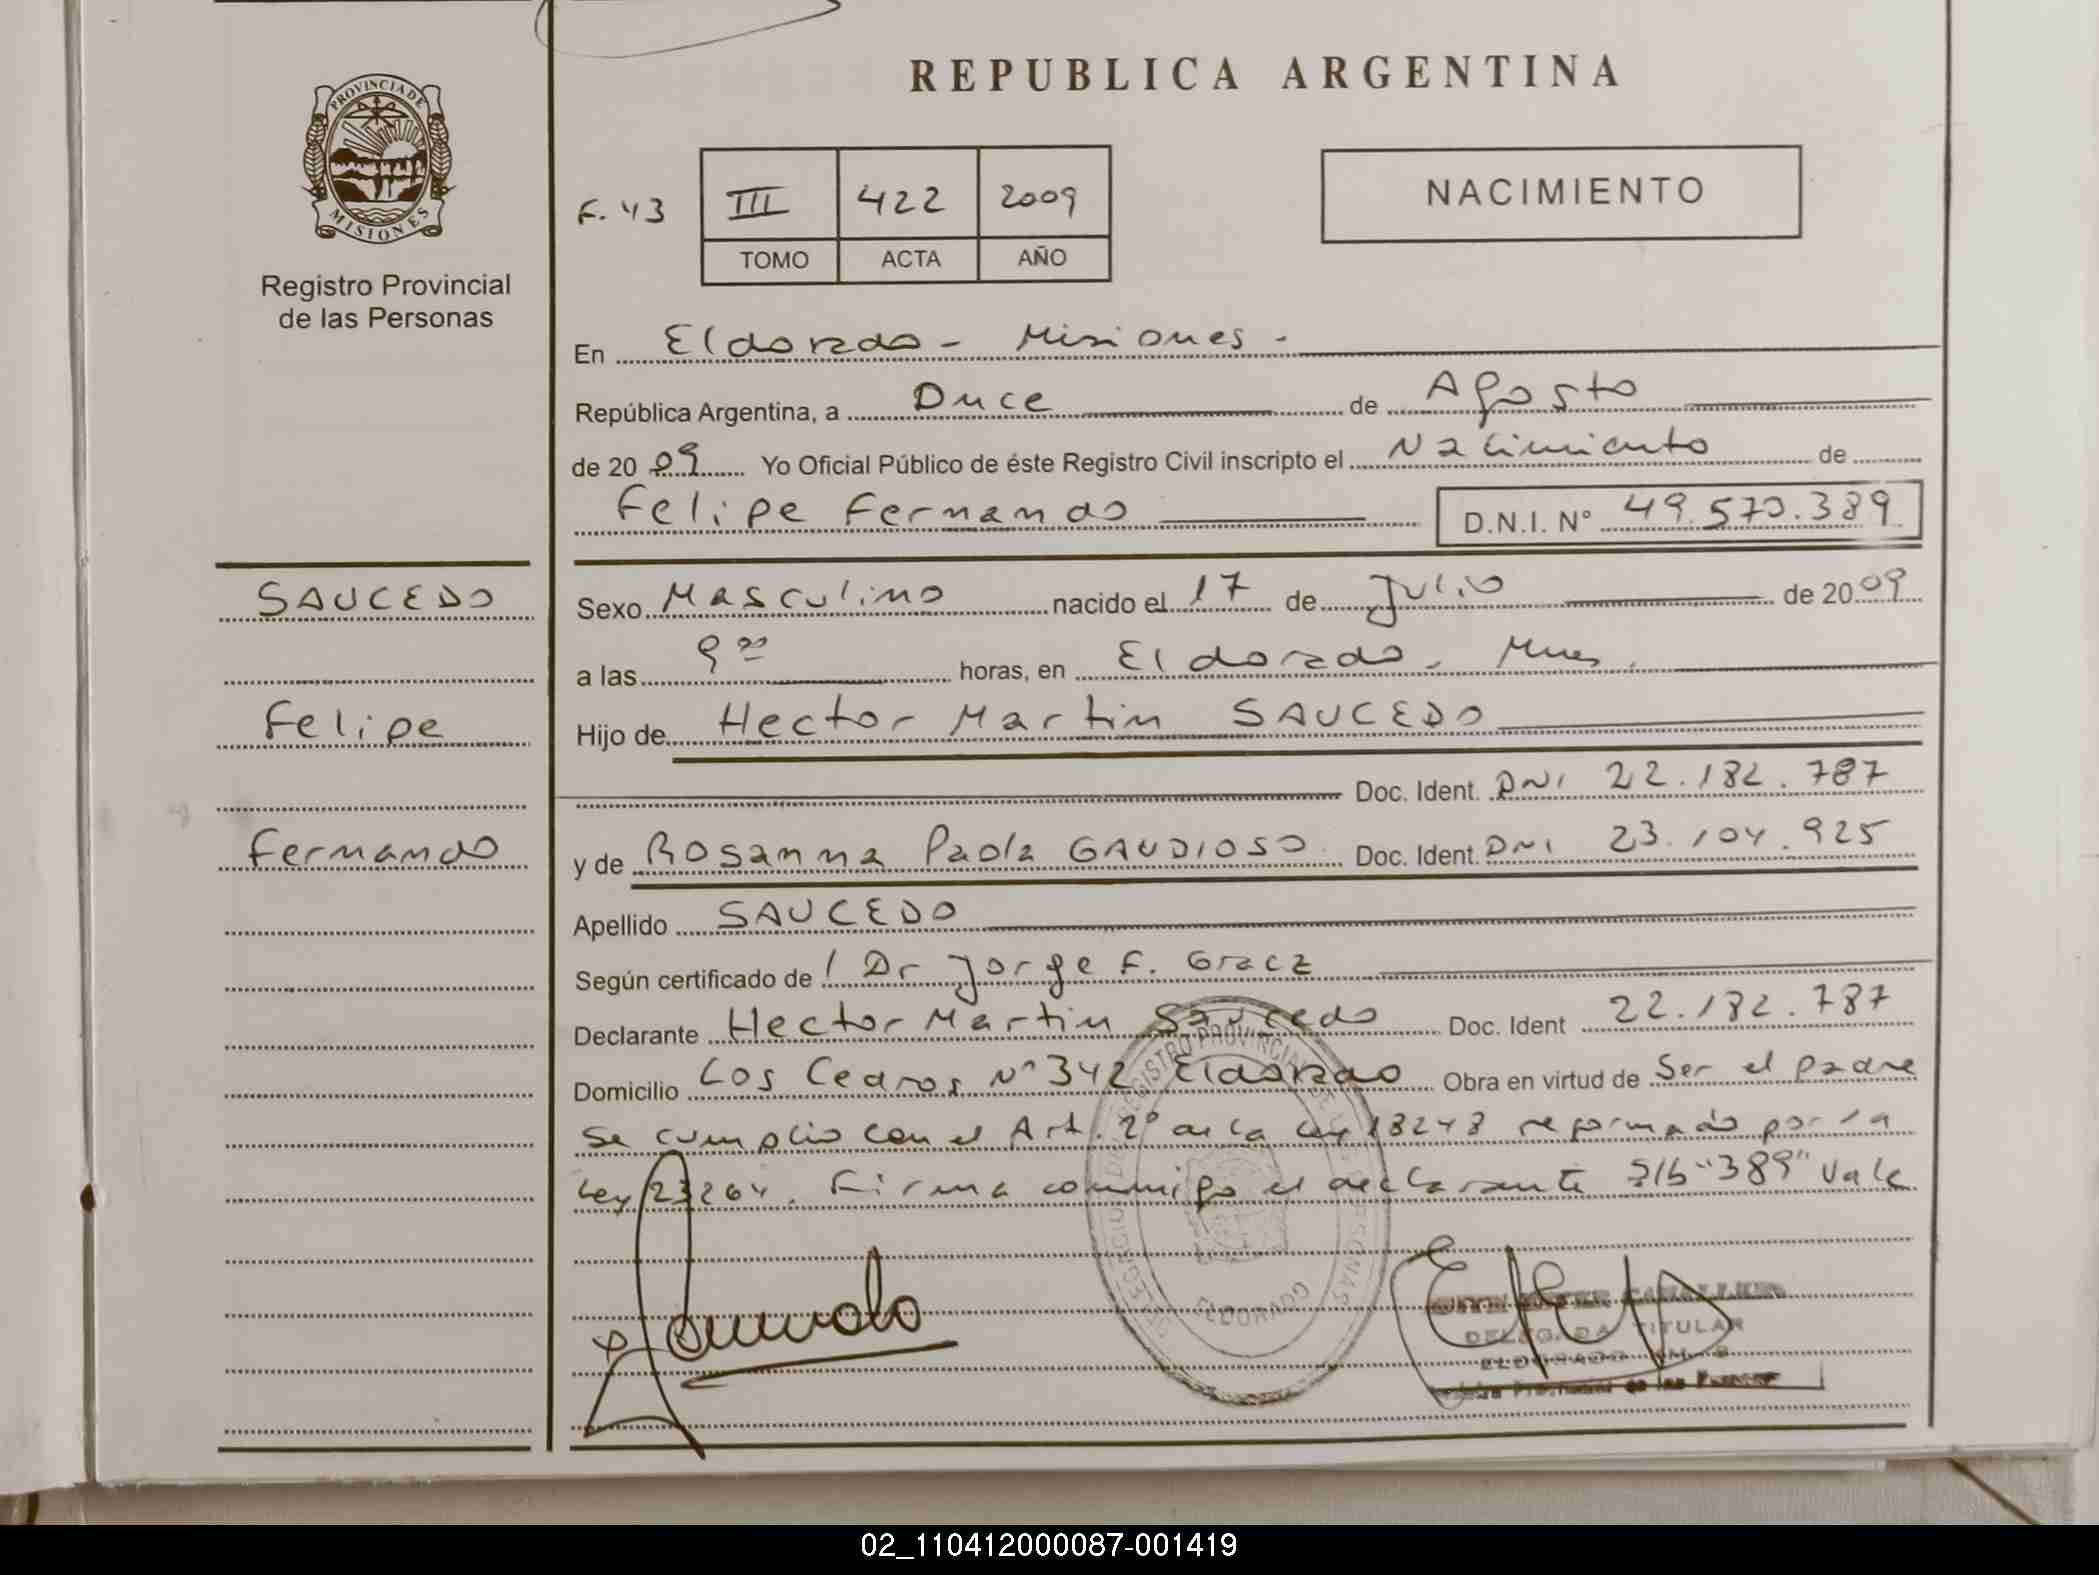 REPUBLICA ARGENTINA
PROVINCIA DE
MISIONES
Registro Provincial
de las Personas
F. 43
III 422 2009
TOMO ACTA AÑO
NACIMIENTO
En Eldorado - Misiones -
República Argentina, a Duce de Agosto
de 20 09 Yo Oficial Público de éste Registro Civil inscripto el Nacimiento de
Felipe Fernando D.N.I. Nº 49.570.389
SAUCEDO
Felipe
Fernando
Sexo Masculino nacido el 17 de Julio de 20 09
a las 9 00 horas, en Eldorado - Mnes.
Hijo de Hector Martin SAUCEDO
Doc. Ident. DNI 22.182.787
y de Rosanna Paola GAUDIOSO Doc. Ident. DNI 23.104.925
Apellido SAUCEDO
Según certificado de Dr Jorge F. Gracz
Declarante Hector Martin Saucedo Doc. Ident 22.182.787
Domicilio Los Cedros Nº 342 Eldorado Obra en virtud de Ser el padre
Se cumplio con el Art. 2º de la Ley 18248 reformado por la
Ley 23264. Firma conmigo el declarante S/b "389" Vale
REGISTRO PROVINCIAL DE LAS PERSONAS
ELDORADO
DELEGADA TITULAR
ELDORADO
Registro Provincial de las Personas
02_110412000087-001419